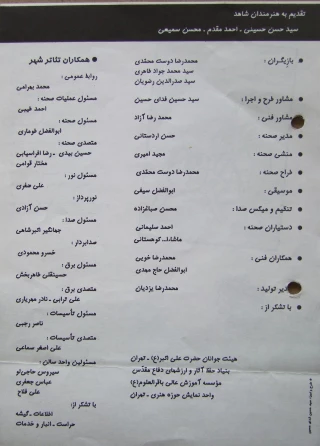 تقدیم به هنرمندان شاهد
سید حسن حسینی . احمد مقدم . محسن سمیعی
بازیگران : محمدرضا دوست محمدی
سید محمد جواد طاهری
سید صدرالدین رضویان
مشاور طرح و اجرا : سید حسین فدای حسین
مشاور فنی : محمد رضا آزاد
مدیر صحنه : حسن اردستانی
منشی صحنه : مجید امیری
طراح صحنه : محمدرضا دوست محمدی
موسیقی : ابوالفضل سیفی
تنظیم و میکس صدا : محسن صباغزاده
دستیاران صحنه : احمد سلیمانی
ماشاءا... کوهستانی
همکاران فنی : محمدرضا خویی
ابوالفضل حاج مهدی
مدیر تولید : محمدرضا یزدیان
با تشکر از :
هیئت جوانان حضرت علی اکبر(ع) ـ تهران
بنیاد حفظ آثار و ارزشهای دفاع مقدس
مؤسسه آموزش عالی باقرالعلوم(ع)
واحد نمایش حوزه هنری ـ تهران
همکاران تئاتر شهر
روابط عمومی :
محمد بهرامی
مسئول عملیات صحنه :
احمد طیبی
مسئول صحنه :
ابوالفضل قوماری
متصدی صحنه :
حسین بیدی ـ رضا افراسیابی
مختار قوامی
مسئول نور :
علی صفری
نورپرداز :
حسن آزادی
مسئول صدا :
جهانگیر اکبرشاهی
صدابردار :
خسرو محمودی
مسئول برق :
حسینقلی طاهربخش
متصدی برق :
علی ترابی ـ نادر مهریاری
مسئول تأسیسات :
ناصر رجبی
متصدی تأسیسات :
علی اصغر سماعی
مسئولین واحد سالن :
سیروس حاجی‌لو
عباس جعفری
علی فلاح
با تشکر از :
اطلاعات ـ گیشه
حراست ـ انبار و خدمات